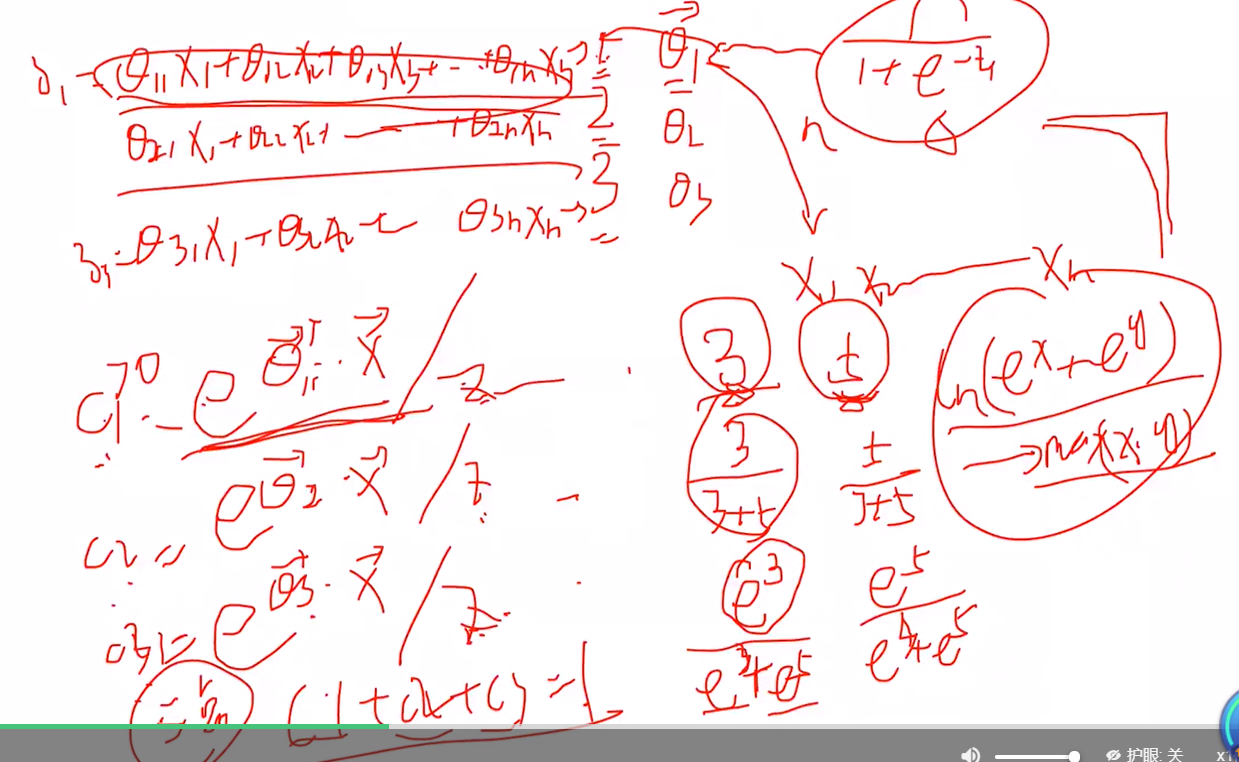 θ₁₁x₁+θ₁₂x₂+θ₁₃x₃+--+θ₁ₙxₙ→1
θ₂₁x₁+θ₂₂x₂+ +θ₂ₙxₙ 2
3
θ₃₁x₁+θ₃₂x₂+ θ₃ₙxₙ→
θ₁
θ₂
θ₃
n
1+e^{-z₁}
x₁ x₂ xₙ
c1=e^{θ₁ᵀ·x}/z
c2=e^{θ₂·x}/z
c3=e^{θ₃·x}/z
c1+c2+c3=1
3 5
3/(3+5) 5/(3+5)
e³/(e³+e⁵) e⁵/(e³+e⁵)
ln(e^x+e^y)
→max(x,y)
护眼: 关